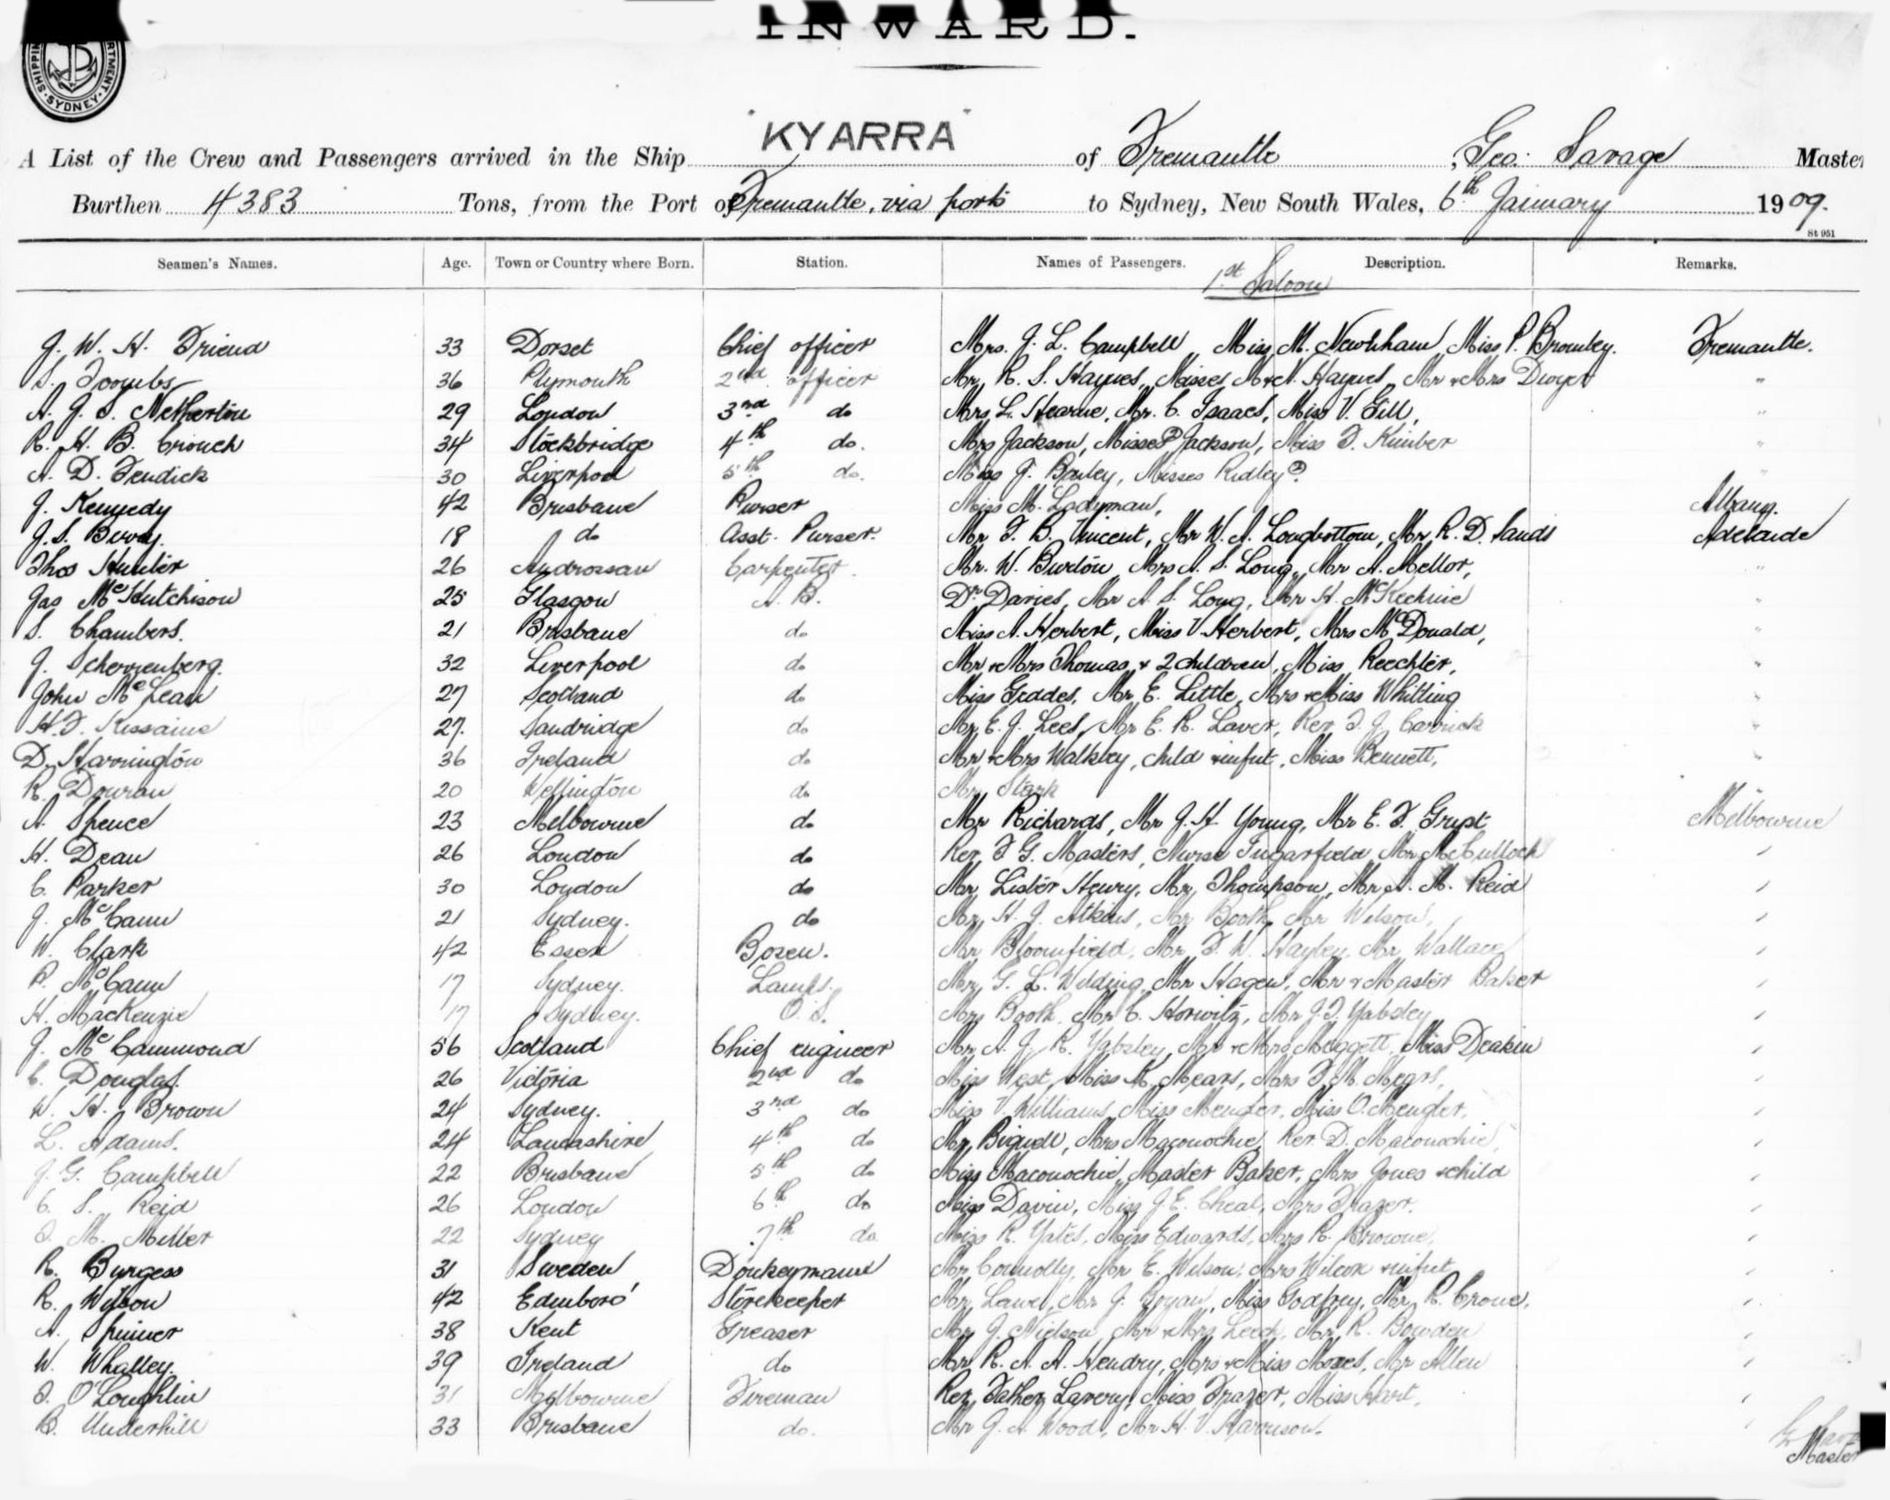 INWARD.
SHIPPING DEPARTMENT SYDNEY
"KYARRA"
A List of the Crew and Passengers arrived in the Ship KYARRA of Fremantle, Geo: Savage Master
Burthen 4383 Tons, from the Port of Fremantle, via ports to Sydney, New South Wales, 6th January 1909.
St 951
Seamen's Names. Age. Town or Country where Born. Station. Names of Passengers. Description. Remarks.
1st Saloon
J. W. H. Friend 33 Dorset Chief officer Mrs. J. L. Campbell, Miss M. Newnham, Miss P. Bromley. Fremantle.
S. Toombs 36 Plymouth 2nd officer Mr. R. S. Haynes, Misses M & N. Haynes, Mr & Mrs Dwyer "
A. G. S. Netherton 29 London 3rd do Mrs L. Hearne, Mr. C. Isaacs, Miss V. Gill, "
R. H. B. Crouch 34 Stockbridge 4th do. Mrs Jackson, Misses 2 Jackson, Miss F. Kimber "
A. D. Fendick 30 Liverpool 5th do. Miss J. Bailey, Misses Ridley 2. "
J. Kennedy 42 Brisbane Purser Miss M. Ladyman, Albany.
J. S. 18 do Asst. Purser. Mr. F. B. Vincent, Mr W. A. Longbottom, Mr R. D. Sands Adelaide
Thos Hunter 26 Androssan Carpenter. Mr. W. Burton, Mrs A. S. Long, Mr A. Mellor, "
Jas McHutchison 25 Glasgow A. B. Dr. Davies, Mr A. S. Long, Mr H. McKechnie "
S. Chambers. 21 Brisbane do Miss A. Herbert, Miss V Herbert, Mrs McDonald, "
J. Scherrenberg. 32 Liverpool do Mr & Mrs Thomas, & 2 children, Miss Reechter, "
John McLean 27 Scotland do Miss Geddes, Mr. E. Little, Mrs & Miss Whitling "
H. F. Kissaine 27. Sandridge do Mr E. J. Lees, Mr E. R. Laver, Rev. F. J. Carrick "
D. Harrington 36 Ireland do Mr & Mrs Walkley, child & infnt, Miss Bennett, "
R. Dowran 20 Wellington do Mr Stark
A. Spence 23 Melbourne do Mr Richards, Mr J. H. Young, Mr E. F. Melbourne
H. Dean 26 London do Rev. F G. Masters, Nurse Sugarfield, Mr McCulloch "
C. Parker 30 London do Mr Lister Henry, Mr Thompson, Mr A. M. Reid "
J. McCann 21 Sydney. do Mr H. J. Atkins, Mr Booth, Mr Wilson, "
W. Clark 42 Essex Bosen. Mr Bloomfield, Mr F. W. Hayley, Mr Wallace "
P. McCann 17 Sydney. Lamps. Mr G. L. Wilding, Mr Hagen, Mr & Master Baker "
H. MacKenzie 17 Sydney. O. S. Mrs Booth, Mr C. Horwitz, Mr J. F. Yabsley "
J. McCammond 56 Scotland Chief engineer Mr A. J. R. Yabsley, Mr & Mrs Meggett, Miss Deakin "
C. Douglas. 26 Victoria 2nd do Miss West, Miss K. Mears, Mrs F. M. Mears, "
W. H. Brown 24 Sydney. 3rd do Miss V. Williams, Miss Mengler, Miss O. Mengler, "
L. Adams. 24 Lancashire 4th do Mr Bignell, Mrs Maconochie, Rev. D. Maconochie, "
J. G. Campbell 22 Brisbane 5th do Miss Maconochie, Master Baker, Mrs Jones & child "
C. S. Reid 26 London 6th do Miss Davin, Miss J. E. Cheal, Mrs Frazer. "
J. M. Miller 22 Sydney 7th do. Miss R. Yates, Miss Edwards, Mrs R. Browne, "
R. Burgess 31 Sweden Donkeyman Mr Connolly, Mr E. Wilson, Mrs Wilcox & infnt, "
R. Wilson 42 Edinboro' Storekeeper Mr Lawe, Mr J. Miss Godfrey, Mr R. Crone, "
A. Spinner 38 Kent Greaser Mr J. Nielson, Mr & Mrs Leech, Mr R. Bowden "
W. Whalley. 39 Ireland do Mr R. A. A. Hendry, Mrs & Miss Moses, Mr Allen "
J. O'Loughlin 31 Melbourne Fireman Rev. Father Lavery, Miss Frazer, Miss Hart, "
B. Underhill 33 Brisbane do. Mr G. A. Wood, Mr H. V. Harrison.
Master